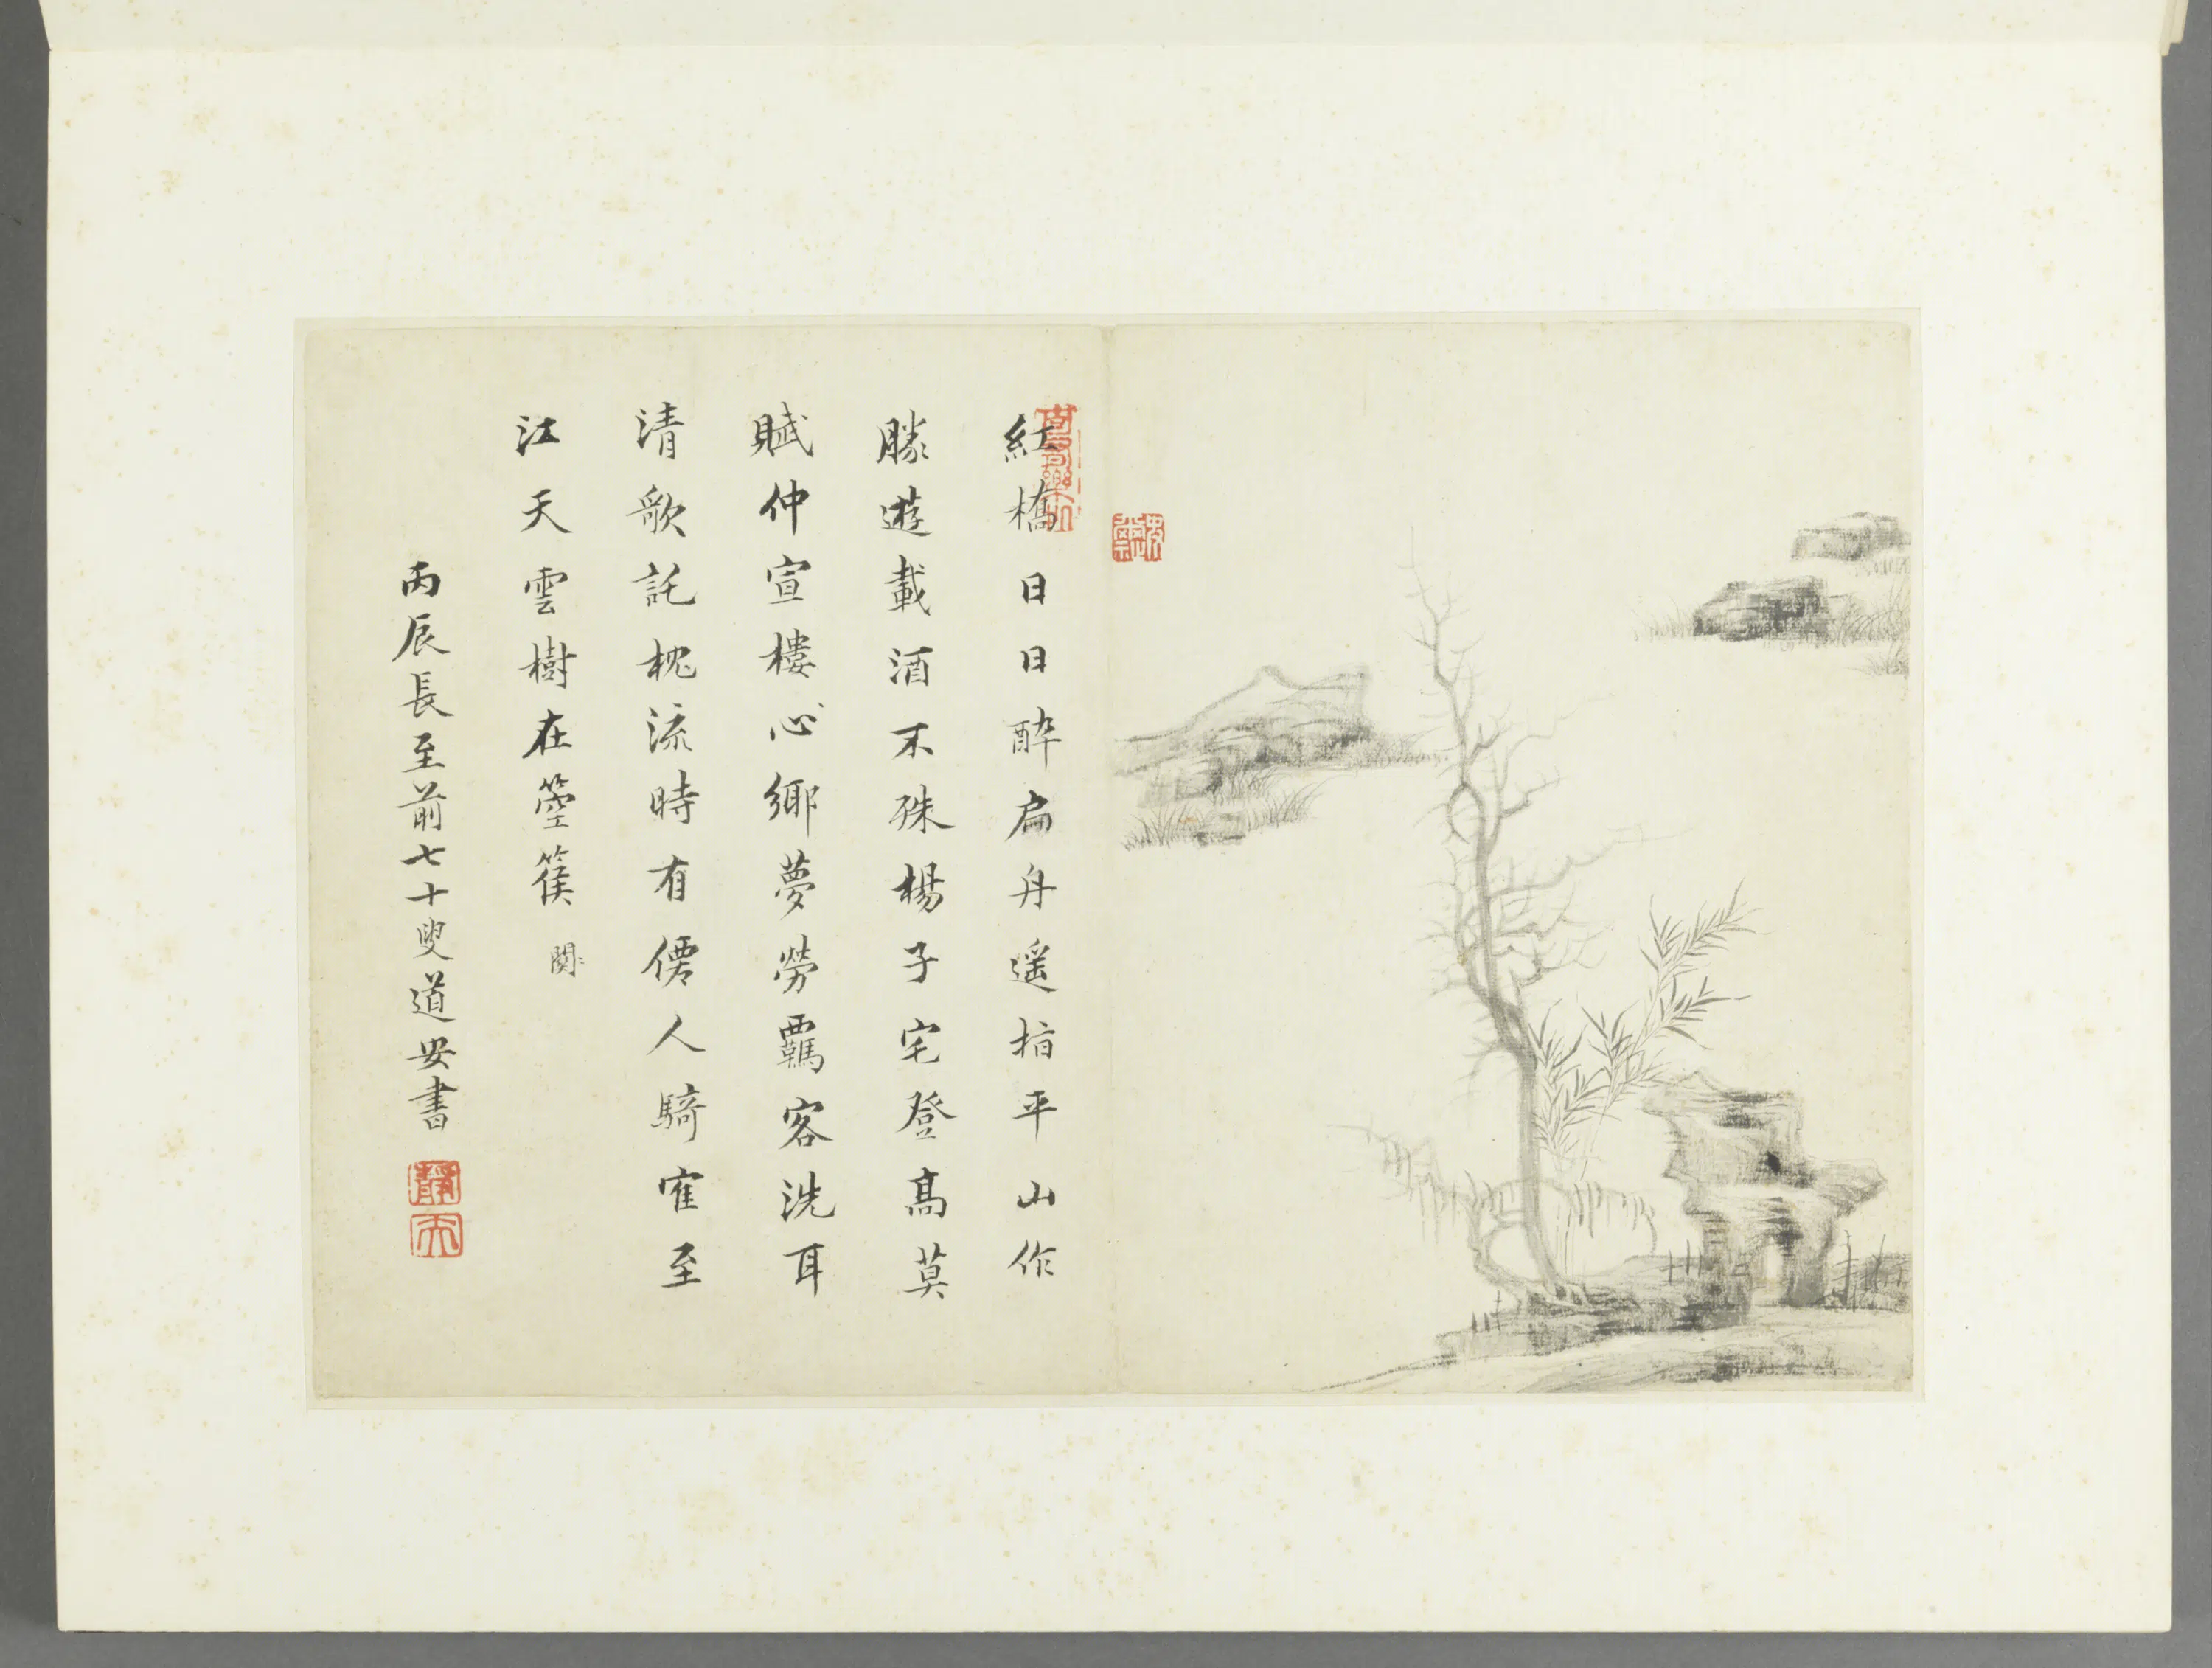 紅橋日日醉扁舟遥指平山作
勝遊載酒不殊楊子宅登髙莫
賦仲宣樓心鄉夢勞羈客洗耳
清歌託枕流時有僊人騎隺至
江天雲樹在箜篌
丙辰長至前七十叟道安書